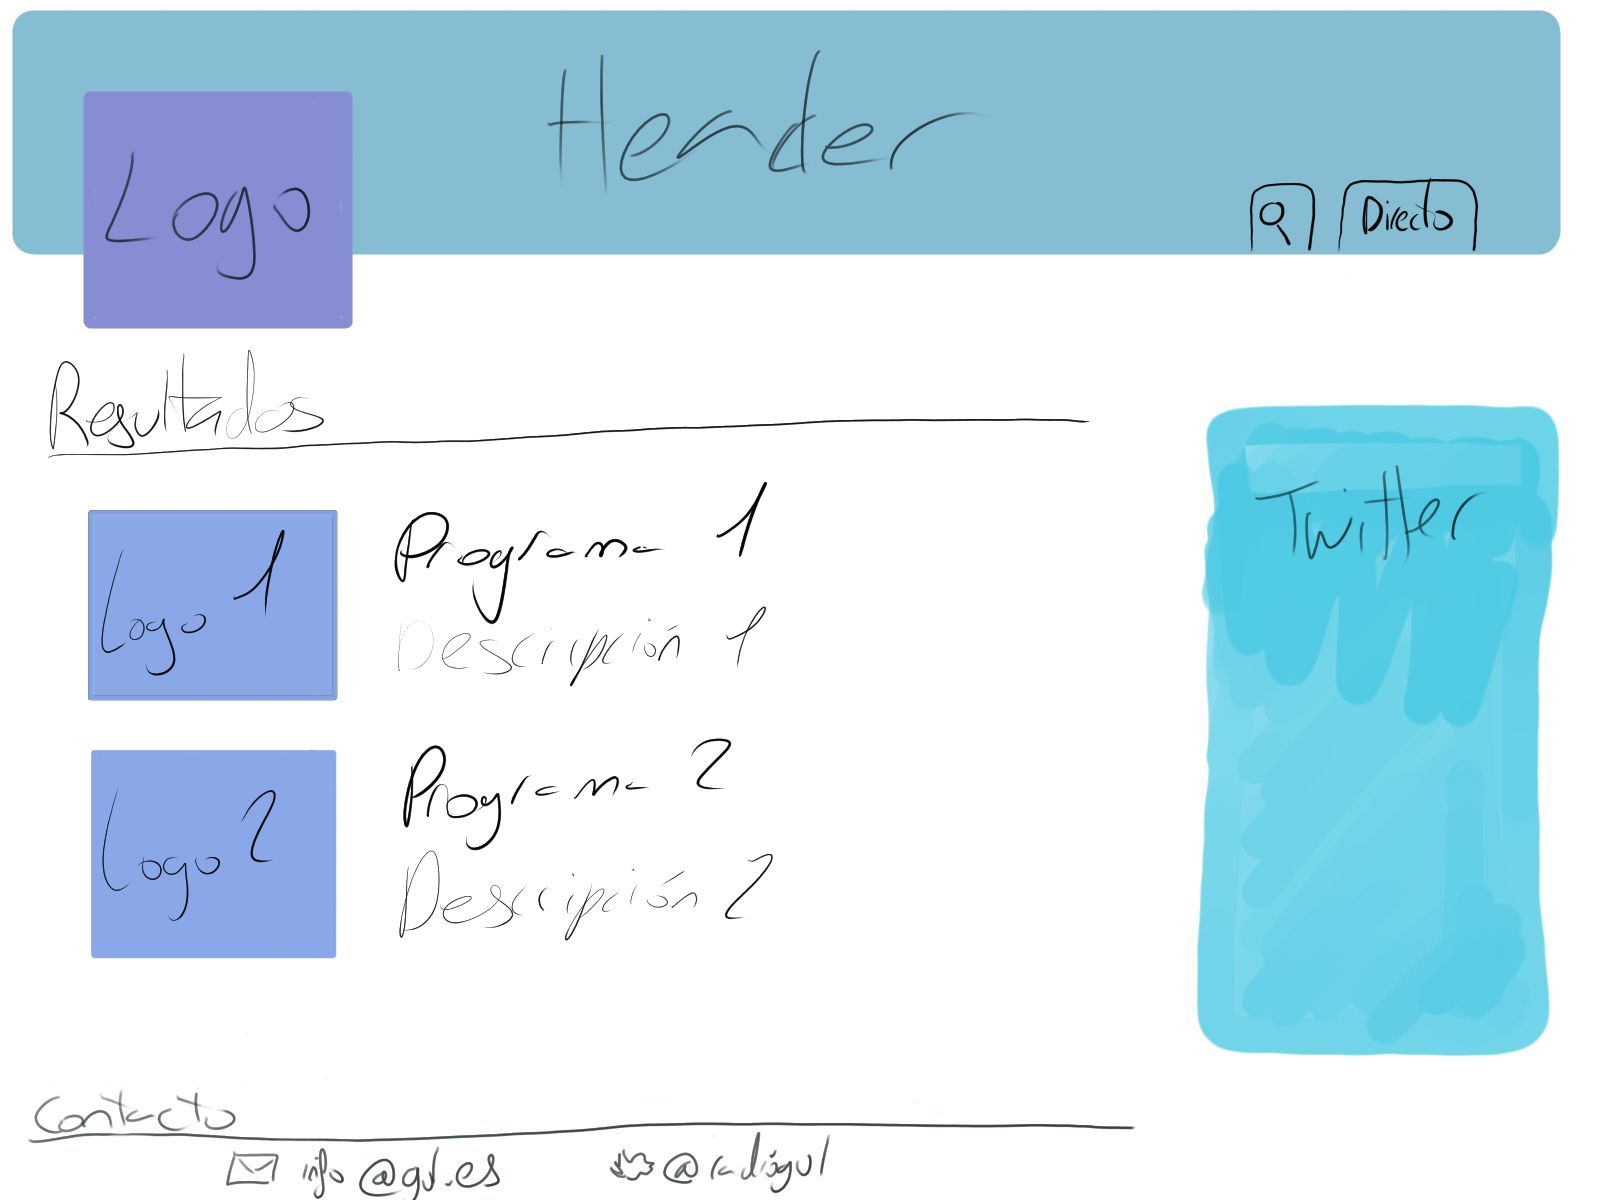 Header
Logo
Directo
Resultados
Twitter
Logo 1
Programa 1
Descripción 1
Logo 2
Programa 2
Descripción 2
Contacto
info@gul.es @radiogul